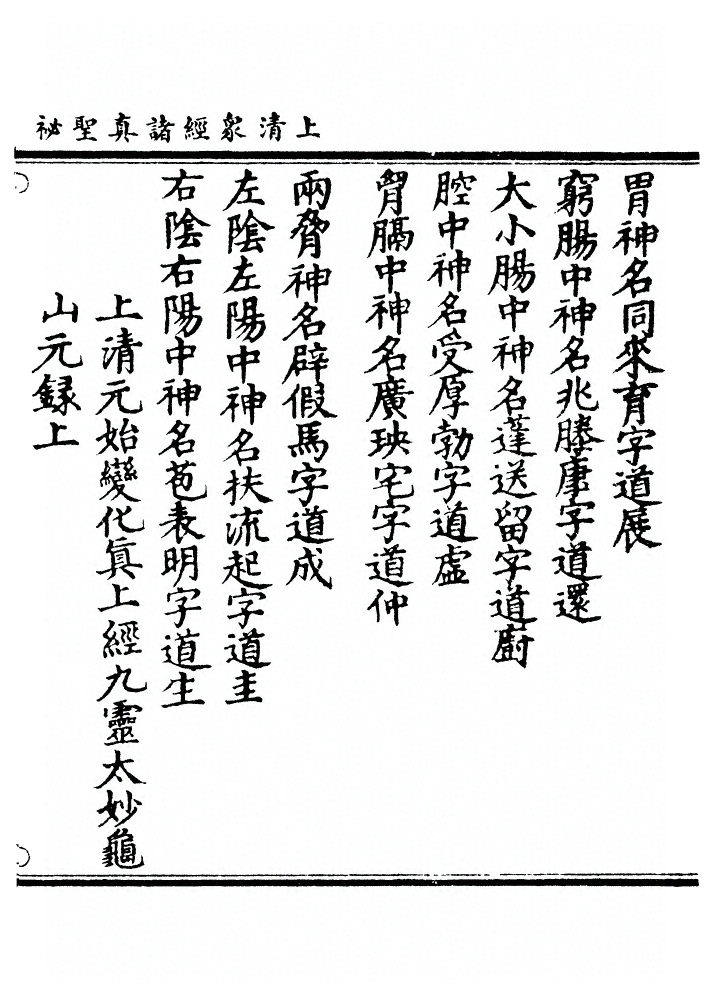 上清衆經諸真聖祕
胃神名同來育字道展
窮腸中神名兆滕康字道還
大小腸中神名蓬送留字道廚
腔中神名受厚勃字道虛
胷膈中神名廣玦宅字道仲
兩脅神名辟假馬字道成
左陰左陽中神名扶流起字道圭
右陰右陽中神名苞表明字道生
上清元始變化真上經九靈太妙龜
山元録上